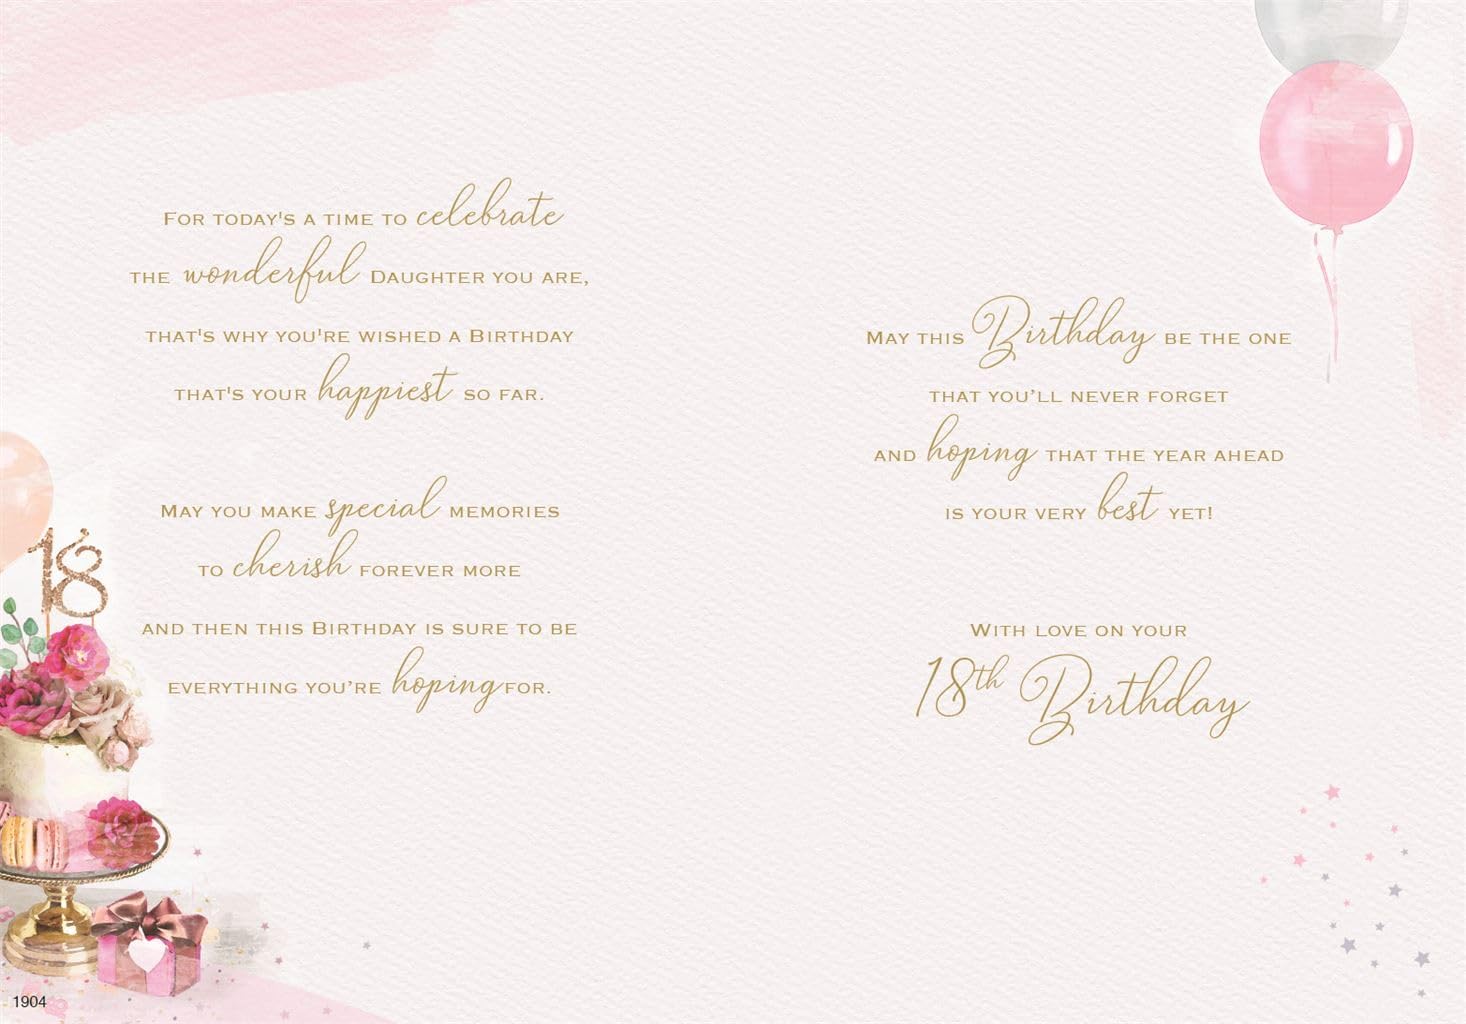 For today's a time to celebrate
the wonderful Daughter you are,
that's why you're wished a Birthday
that's your happiest so far.
May you make special memories
to cherish forever more
and then this Birthday is sure to be
everything you're hoping for.
18
1904
May this Birthday be the one
that you'll never forget
and hoping that the year ahead
is your very best yet!
With love on your
18th Birthday